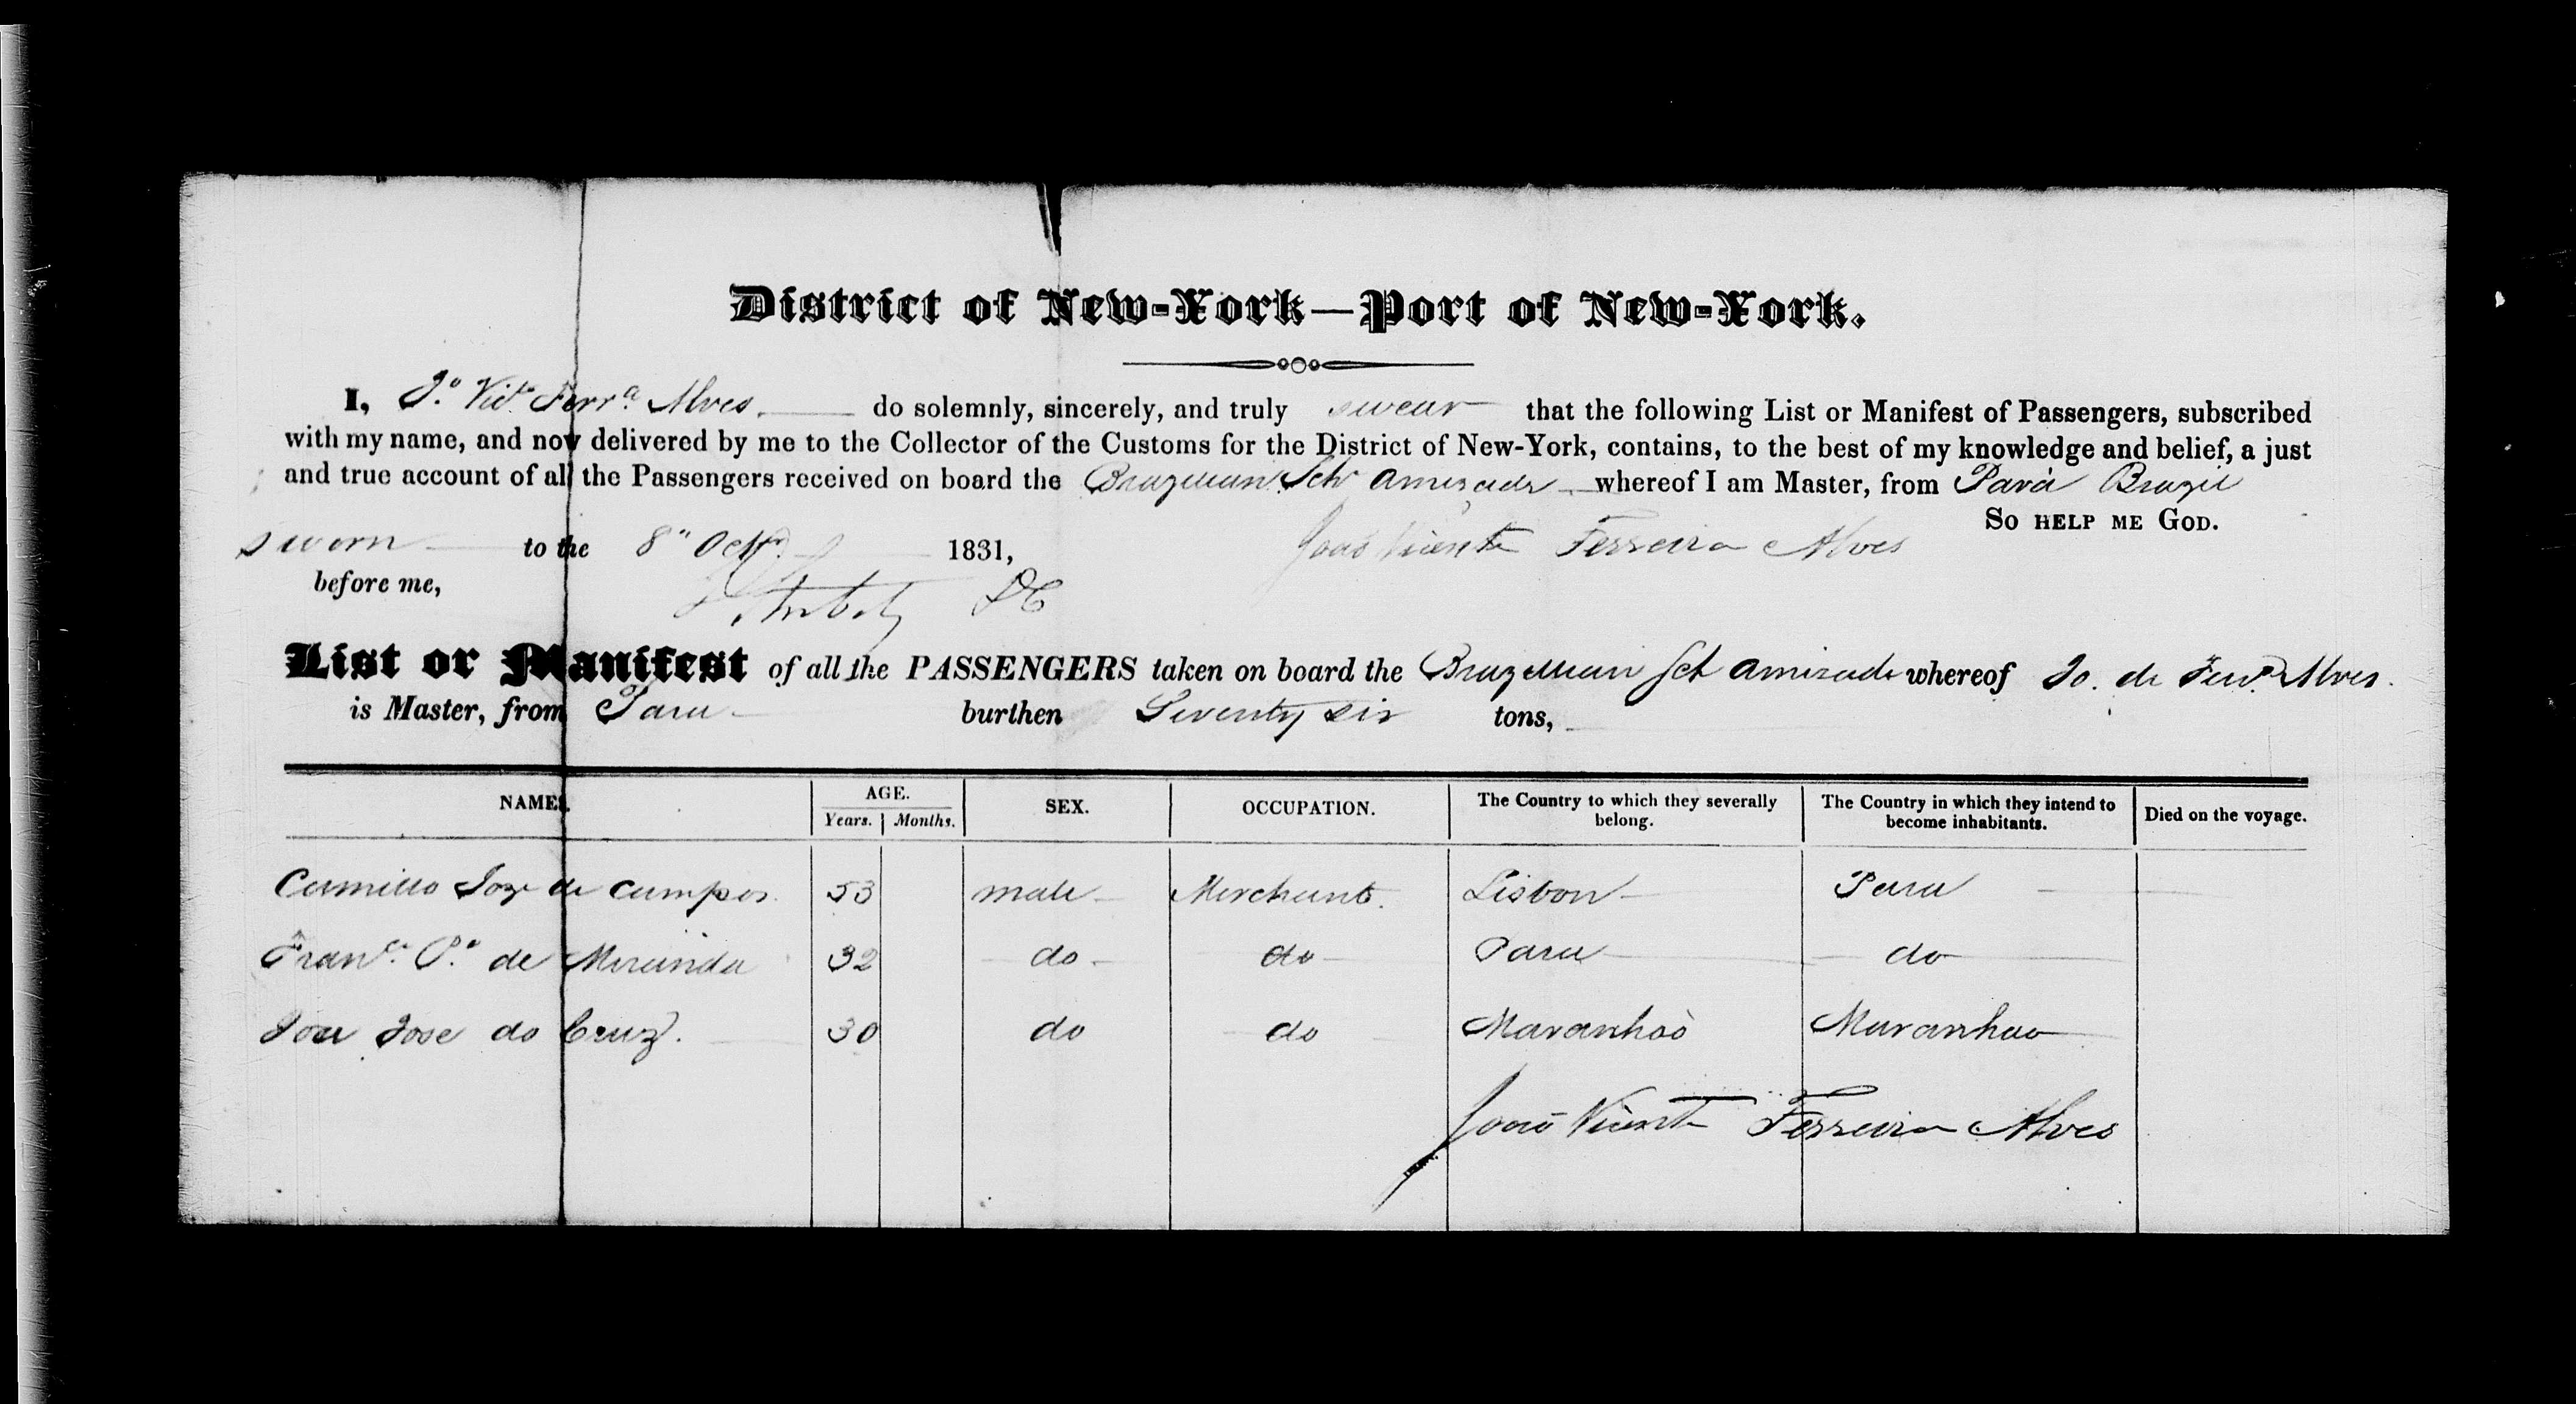 District of New-York—Port of New-York.
I, Jo. Vict. Ferra. Alves. do solemnly, sincerely, and truly swear that the following List or Manifest of Passengers, subscribed
with my name, and now delivered by me to the Collector of the Customs for the District of New-York, contains, to the best of my knowledge and belief, a just
and true account of all the Passengers received on board the Brazilian Schr Amizade whereof I am Master, from Pará Brazil
So help me God.
sworn to the 8" Octr. 1831, João Vicente Ferreira Alves
before me, DC
List or Manifest of all the PASSENGERS taken on board the Brazilian Sch Amizade whereof Jo. de Alves.
is Master, from Para burthen Seventy six tons,
NAMES. AGE. SEX. OCCUPATION. The Country to which they severally belong. The Country in which they intend to become inhabitants. Died on the voyage.
Years. Months.
Camillo Joze de Campos. 53 male Merchant. Lisbon Para
Franco. Po. de Miranda 32 do do Para do
Jose do Cruz. 30 do do Maranhaò Maranhao
João Vicente Ferreira Alves